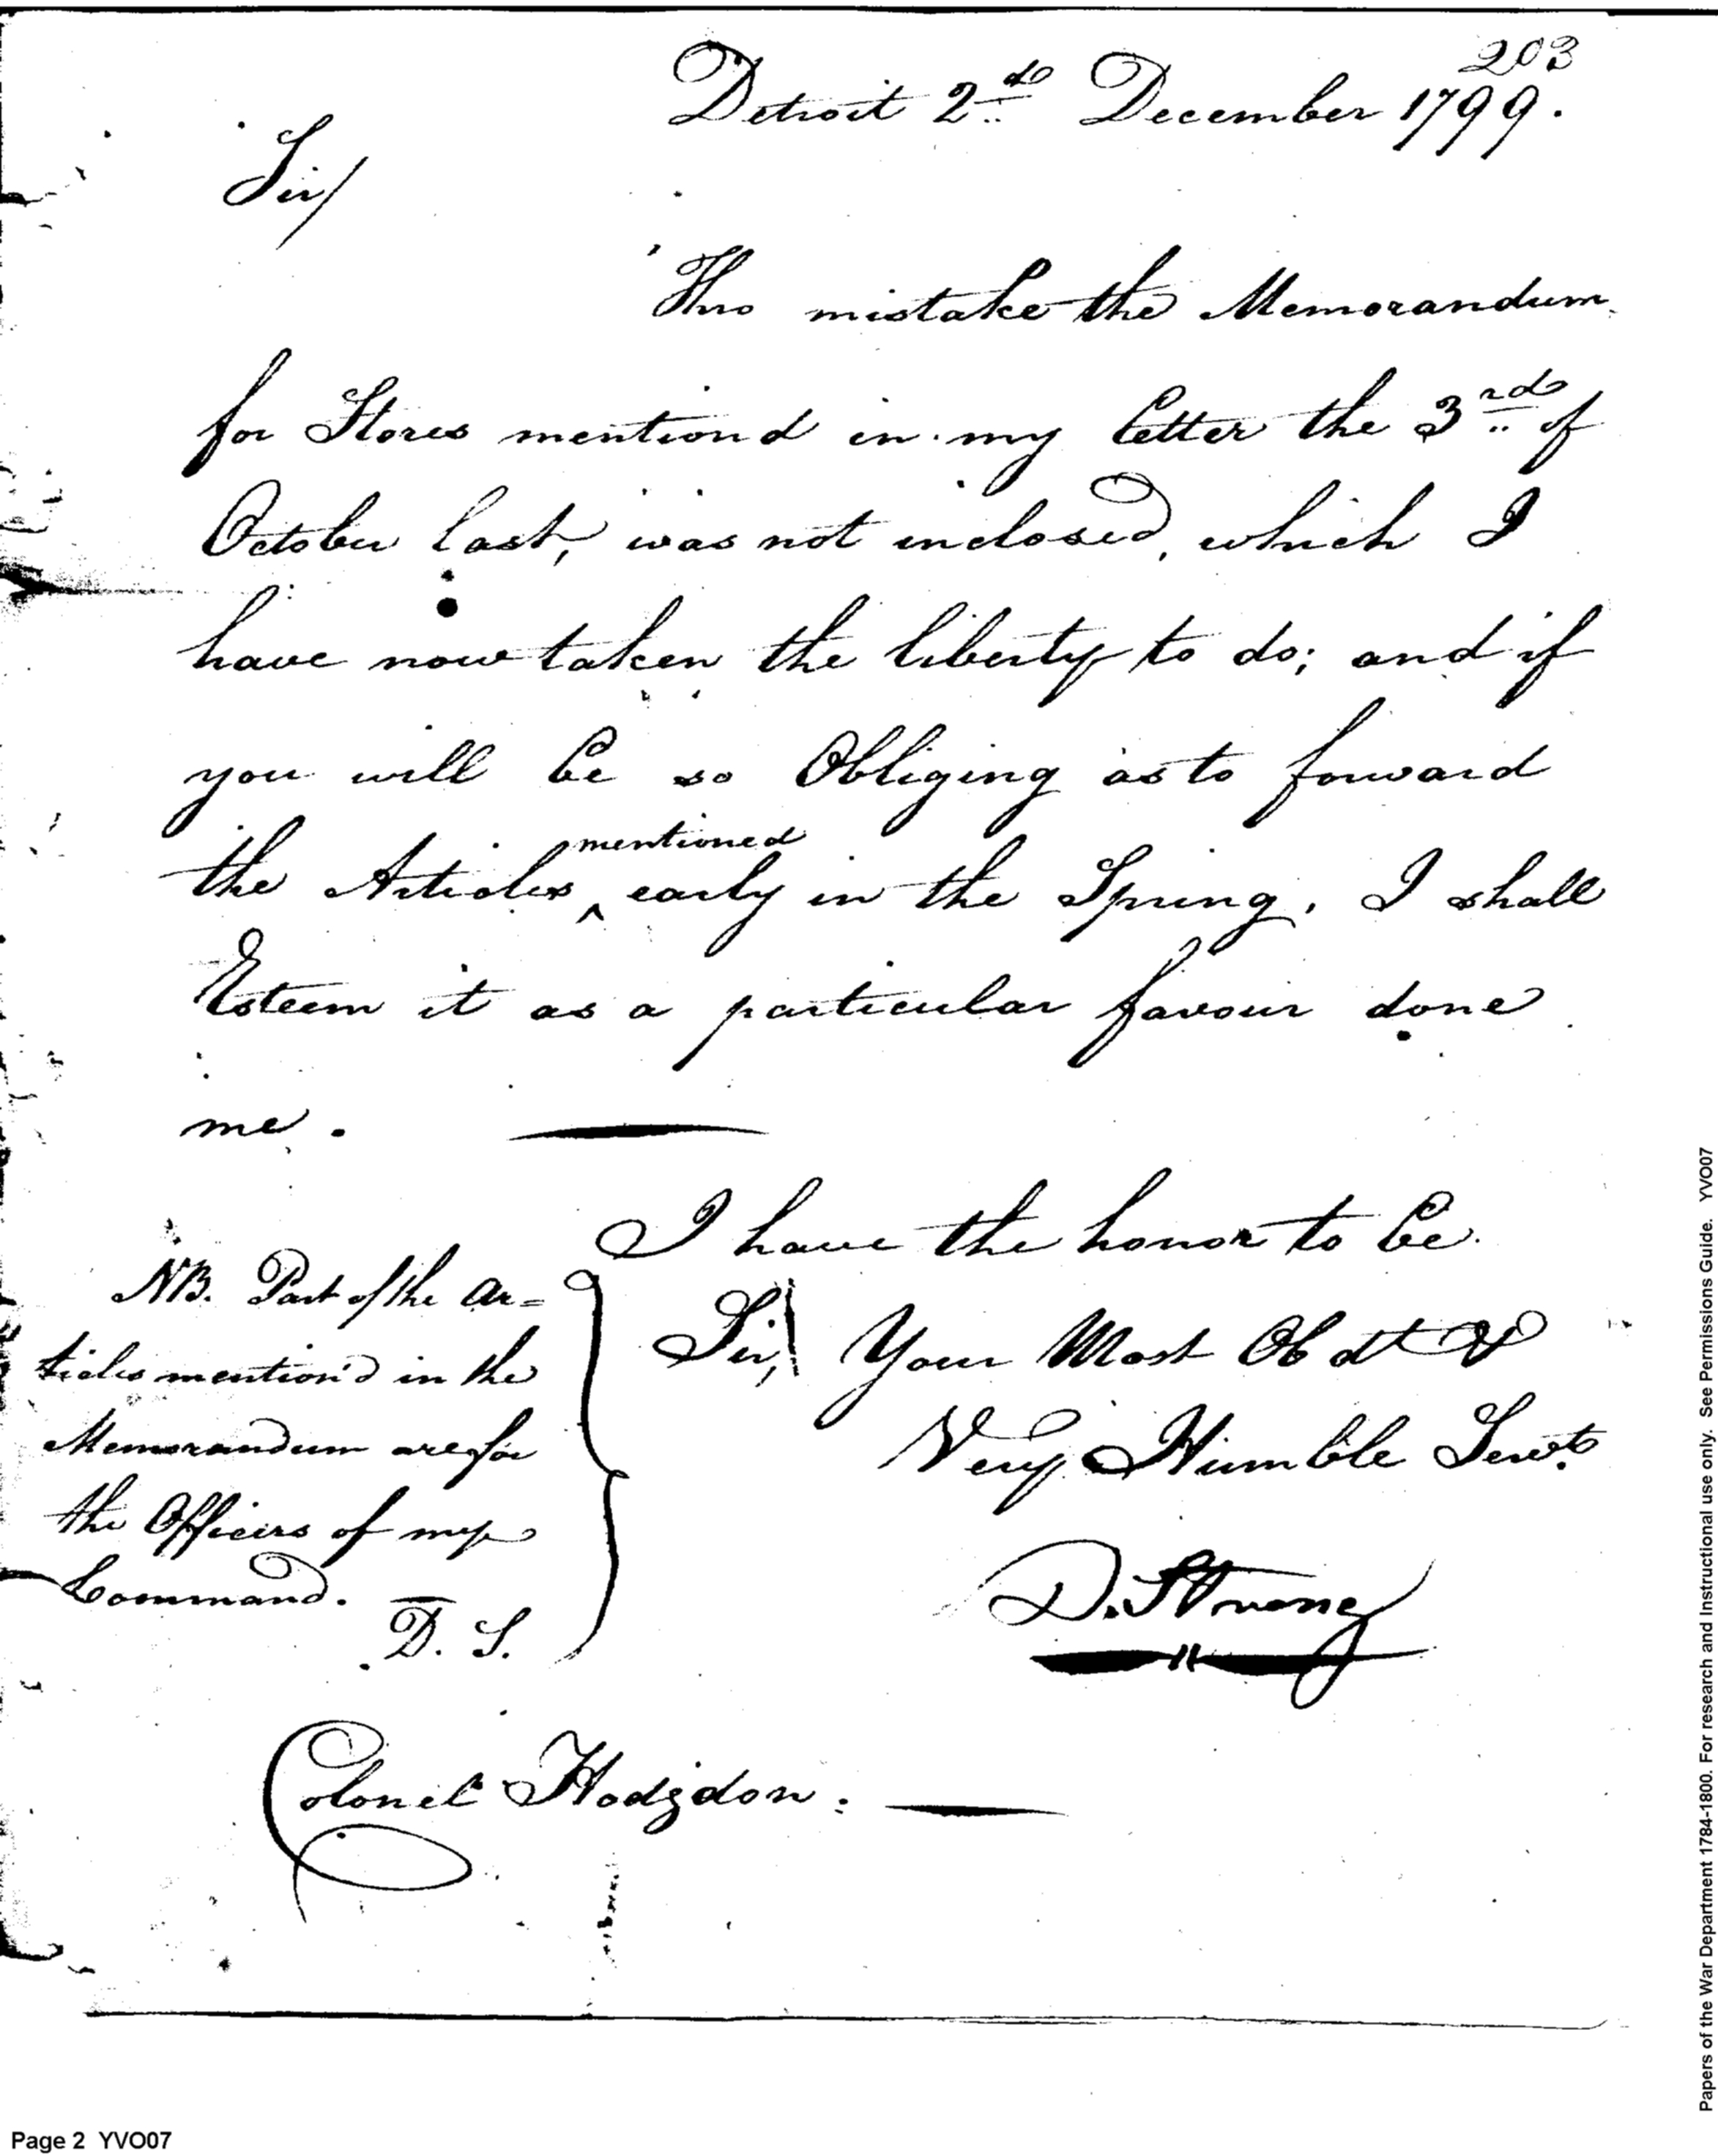 203
Detroit 2nd December 1799.
Sir/
Thro mistake the Memorandum
for Stores mention d in my letter the 3rd of
October last, was not inclosed, which I
have now taken the liberty to do; and if
you will be so Obliging as to forward
mentioned
the Articles ^ early in the Spring, I shall
Esteem it as a particular favour done
me.
I have the honor to be
Sir, Your Most Obdt &
Very Humble Servt.
D. Strong
NB. Part of the Ar=
ticles mention'd in the
Memorandum are for
the Officers of my
Command.
D. S.
Colonel Hodgdon.
Page 2 YVO07
Papers of the War Department 1784-1800. For research and Instructional use only. See Permissions Guide. YVO07